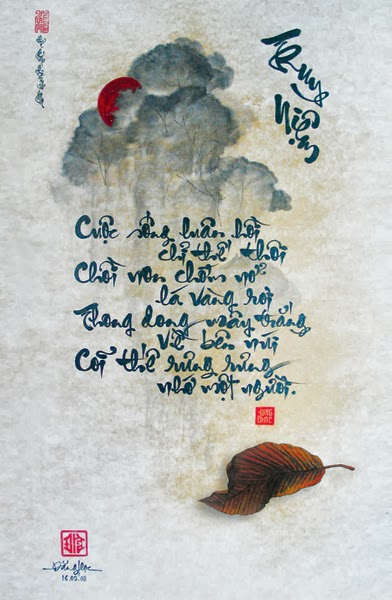 Truy
Niệm
Cuộc sống luân hồi
chỉ thế thôi
Chồi non chớm nở
lá vàng rơi
Thong dong mây trắng
về bên núi
Cõi thế rưng rưng
nhớ một người.
16.05.08